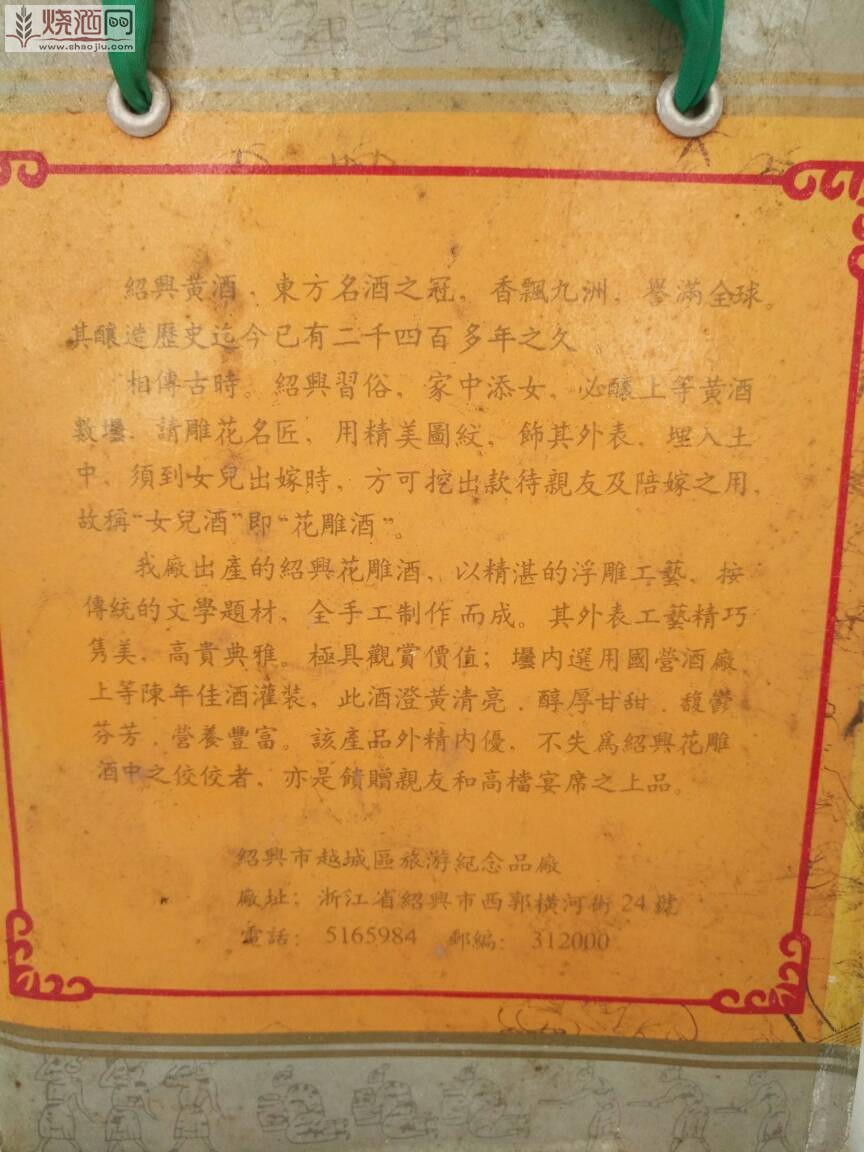 烧酒网
www.shaojiu.com
紹興黄酒，東方名酒之冠，香飄九洲，譽滿全球。
其釀造歷史迄今已有二千四百多年之久
相傳古時。紹興習俗，家中添女，必釀上等黄酒
數壜，請雕花名匠，用精美圖紋，飾其外表，埋入土
中，須到女兒出嫁時，方可挖出款待親友及陪嫁之用，
故稱“女兒酒”即“花雕酒”。
我廠出產的紹興花雕酒，以精湛的浮雕工藝，按
傳統的文學題材，全手工制作而成。其外表工藝精巧
隽美，高貴典雅。極具觀賞價值；壜内選用國營酒廠
上等陳年佳酒灌装，此酒澄黄清亮．醇厚甘甜．馥鬱
芬芳．營養豐富。該產品外精内優，不失為紹興花雕
酒中之佼佼者，亦是饋贈親友和高檔宴席之上品。
紹興市越城區旅游紀念品廠
廠址：浙江省紹興市西郭横河街24號
電話：5165984 郵編：312000